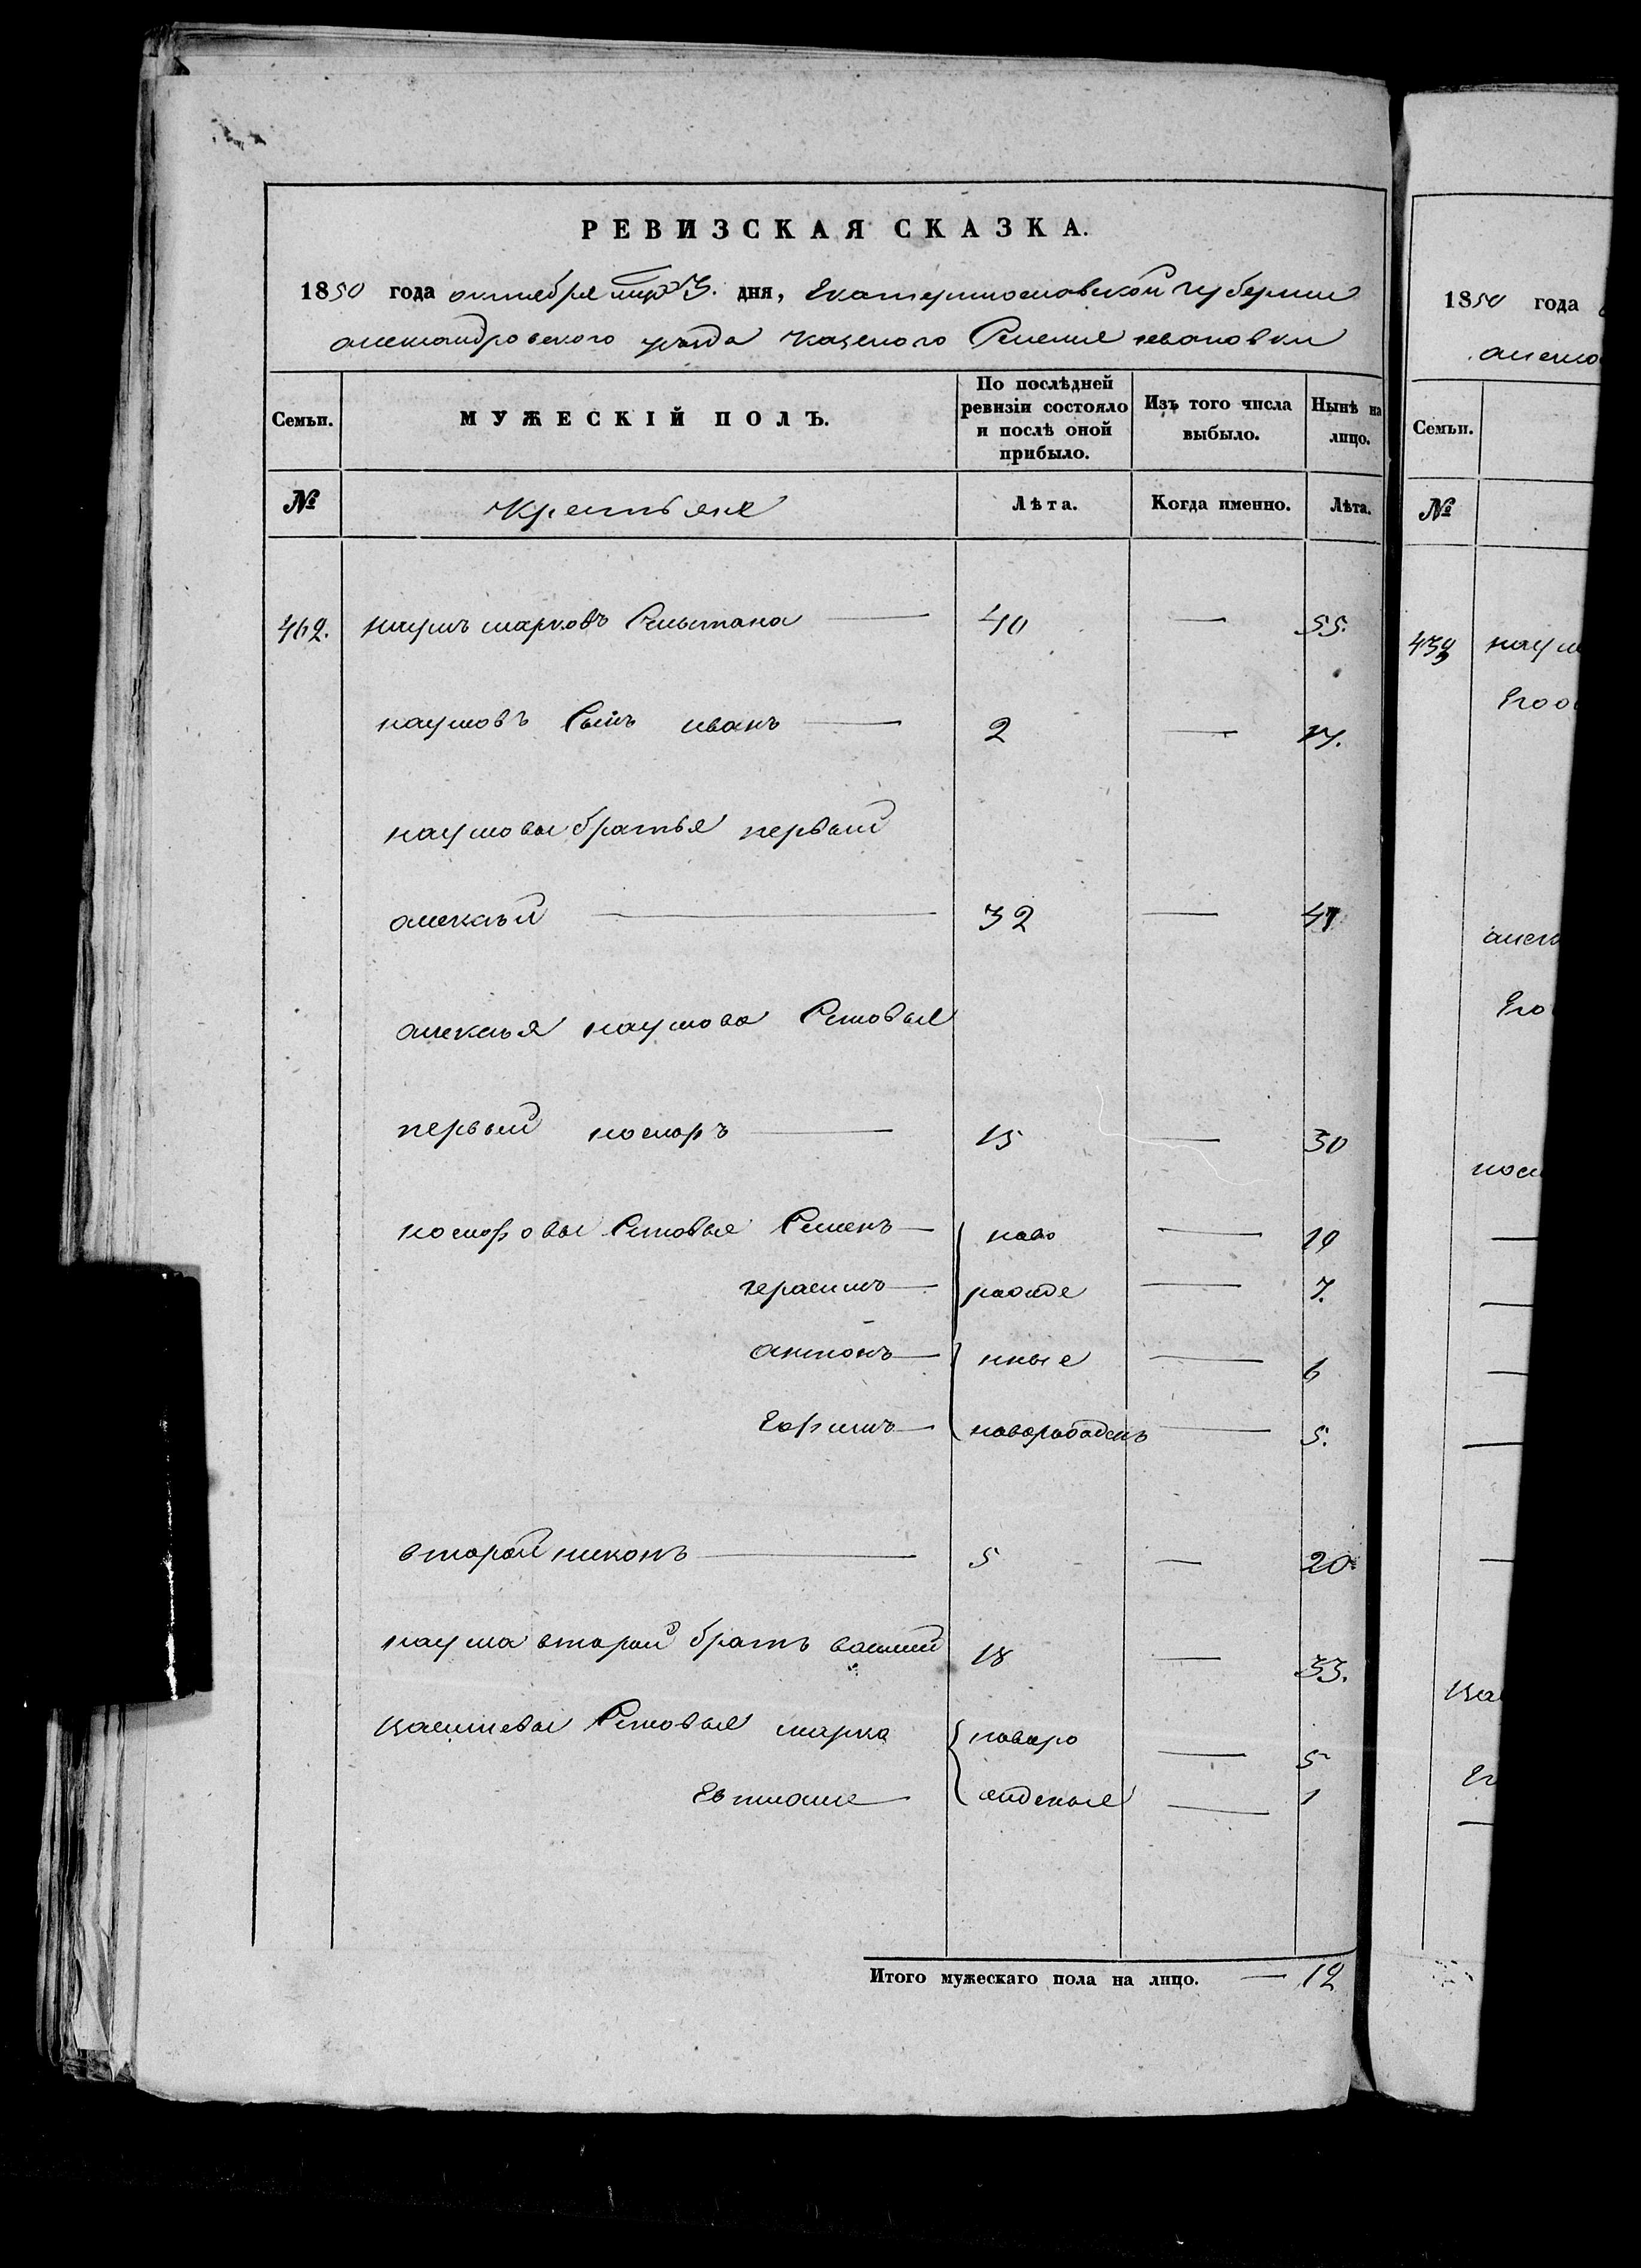 РЕВИЗСКАЯ СКАЗКА.
1850 года октебря дня, Екатеринославской губернии
александровского уезда казеного Селения ивановки
Семьи.
МУЖЕСКІЙ ПОЛЪ.
По послѣдней ревизіи состояло и послѣ оной прибыло.
Изъ того числа выбыло.
Нынѣ на лицо.
№
Крестьяне
Лѣта.
Когда именно.
Лѣта.
462. наумъ марковъ 40 — 55.
наумовъ Сынъ иванъ 2 — 17.
наумовы братья первый
алексѣй 32 — 47
алексѣя наумова Сыновья
первый несторъ 15 — 30
несторовы Сыновья Семенъ — ново — 10
герасимъ — рожде — 7.
антонъ — нные — 6
Ефимъ — новорожденъ — 5.
второй никонъ 5 — 20
наума второй братъ василий 18 — 33.
васильевы Сыновья марко новоро — 5
— жденые — 1
Итого мужескаго пола на лицо. — 12
1850 года
алекса
Семьи.
№
439 наум
Его
алек
Его
нест
ва
Ег